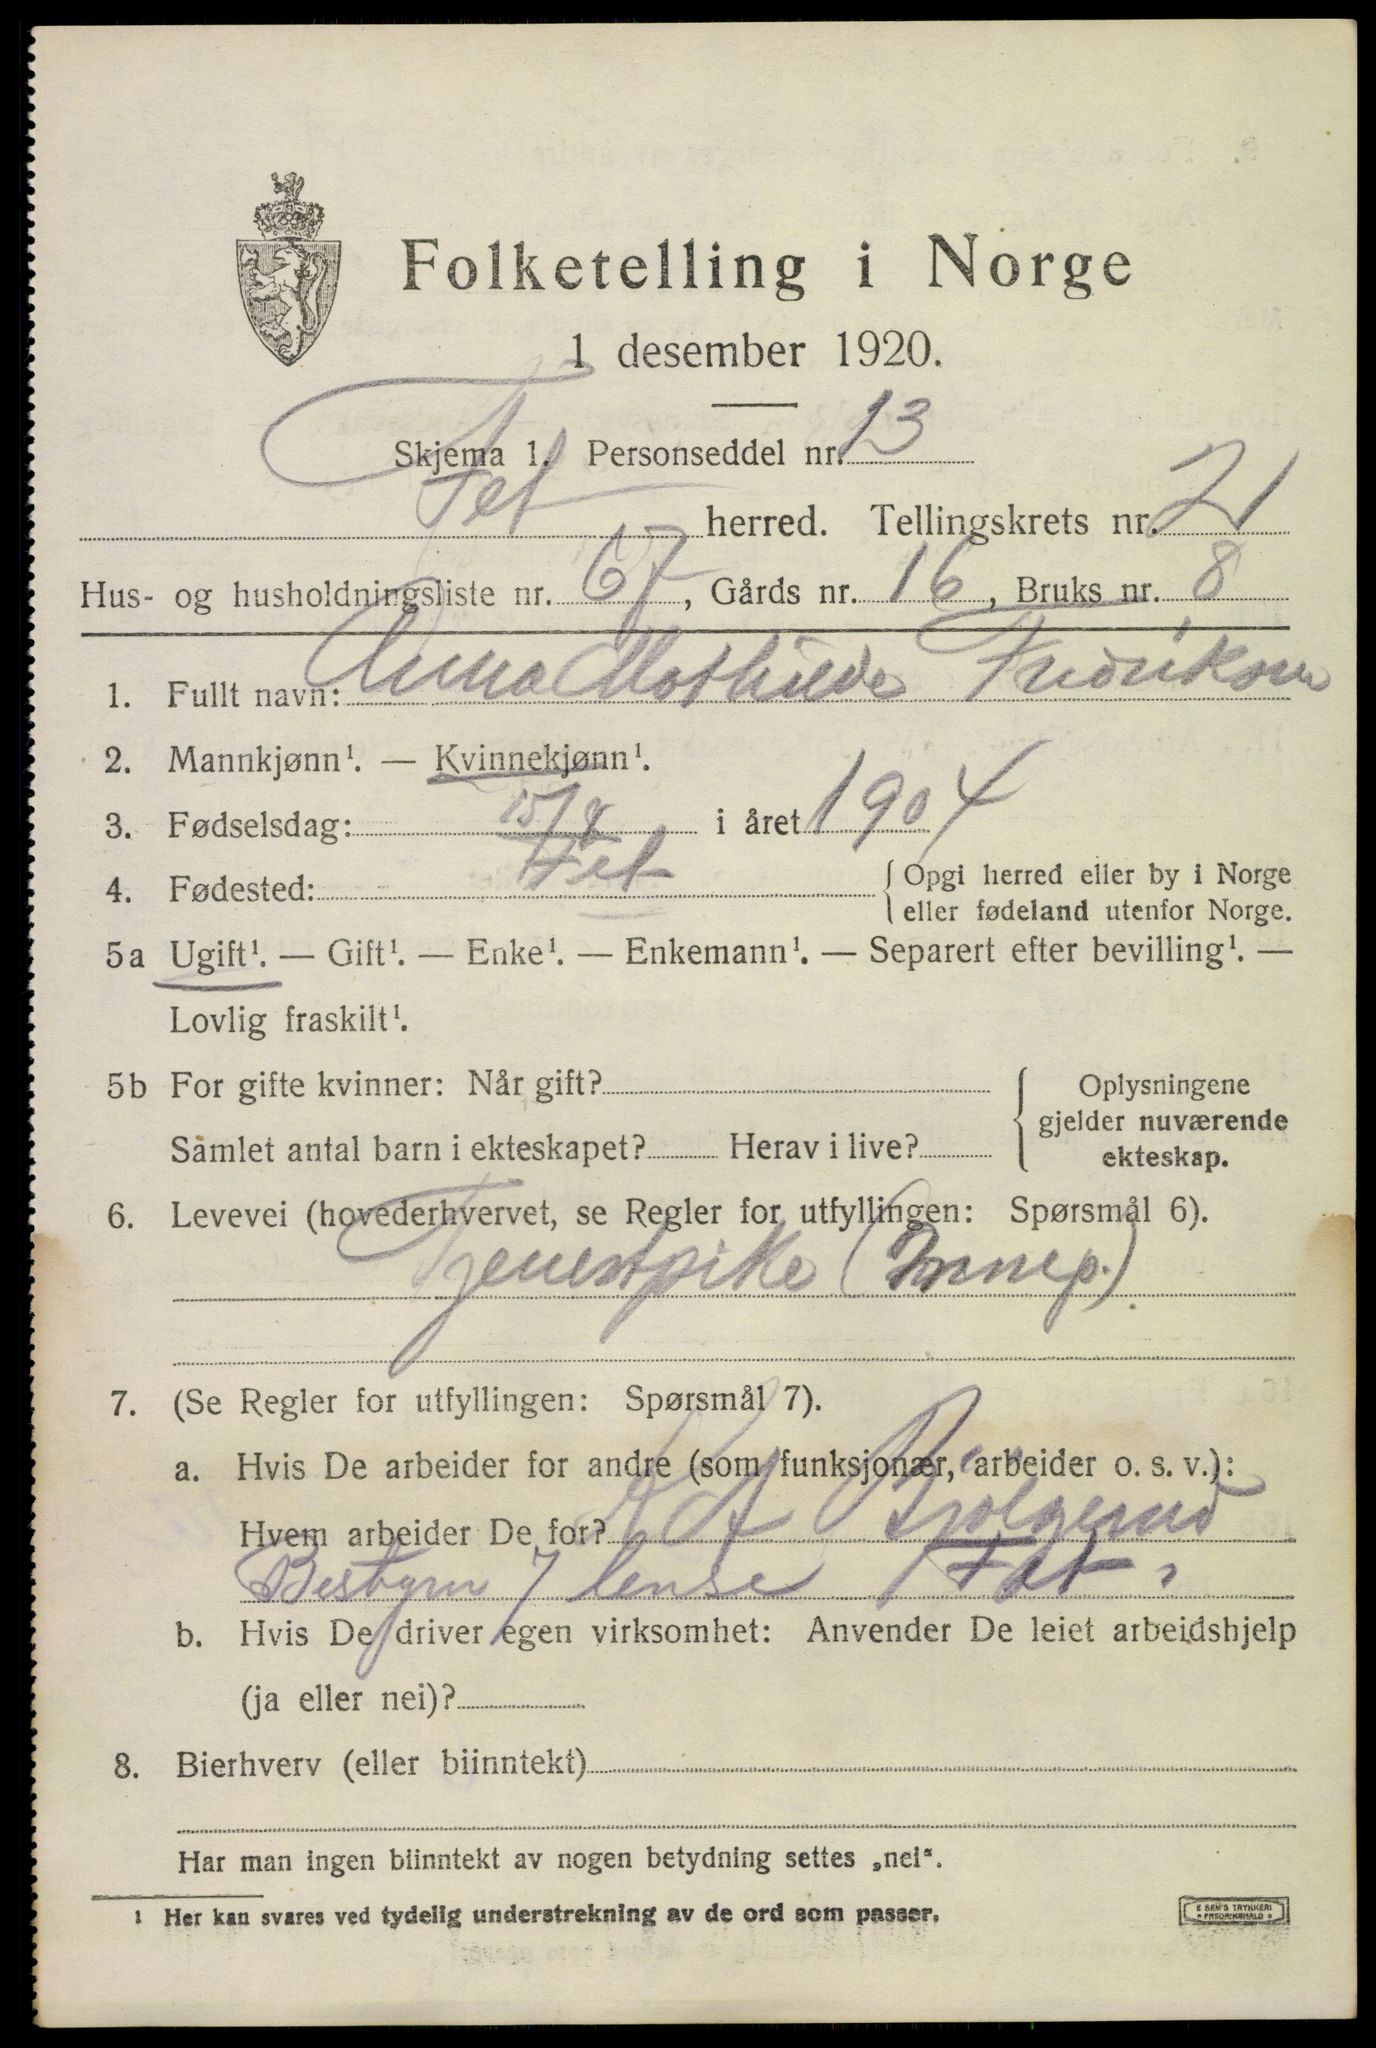 Folketelling i Norge
1 desember 1920.
Skjema 1. Personseddel nr. 13
Fet herred. Tellingskrets nr. 21
Hus- og husholdningsliste nr. 67, Gårds nr. 16, Bruks nr. 8
1. Fullt navn: Anna Mathilde Fredriksen
2. Mannkjønn¹. — Kvinnekjønn¹.
3. Fødselsdag: 15/8 i året 1904
4. Fødested: Fet { Opgi herred eller by i Norge
eller fødeland utenfor Norge.
5a Ugift¹. — Gift¹. — Enke¹. — Enkemann¹. — Separert efter bevilling¹. —
Lovlig fraskilt¹.
5b For gifte kvinner: Når gift?
Samlet antal barn i ekteskapet? Herav i live?
Oplysningene
gjelder nuværende
ekteskap.
6. Levevei (hovederhvervet, se Regler for utfyllingen: Spørsmål 6).
Tjenestpike (Innep.)
7. (Se Regler for utfyllingen: Spørsmål 7).
a. Hvis De arbeider for andre (som funksjonær, arbeider o. s. v.):
Hvem arbeider De for?
Bestyrer lense Fet
b. Hvis De driver egen virksomhet: Anvender De leiet arbeidshjelp
(ja eller nei)?
8. Bierhverv (eller biinntekt)
Har man ingen biinntekt av nogen betydning settes „nei“.
1 Her kan svares ved tydelig understrekning av de ord som passer.
E SEM'S TRYKKERI
FREDRIKSHALD